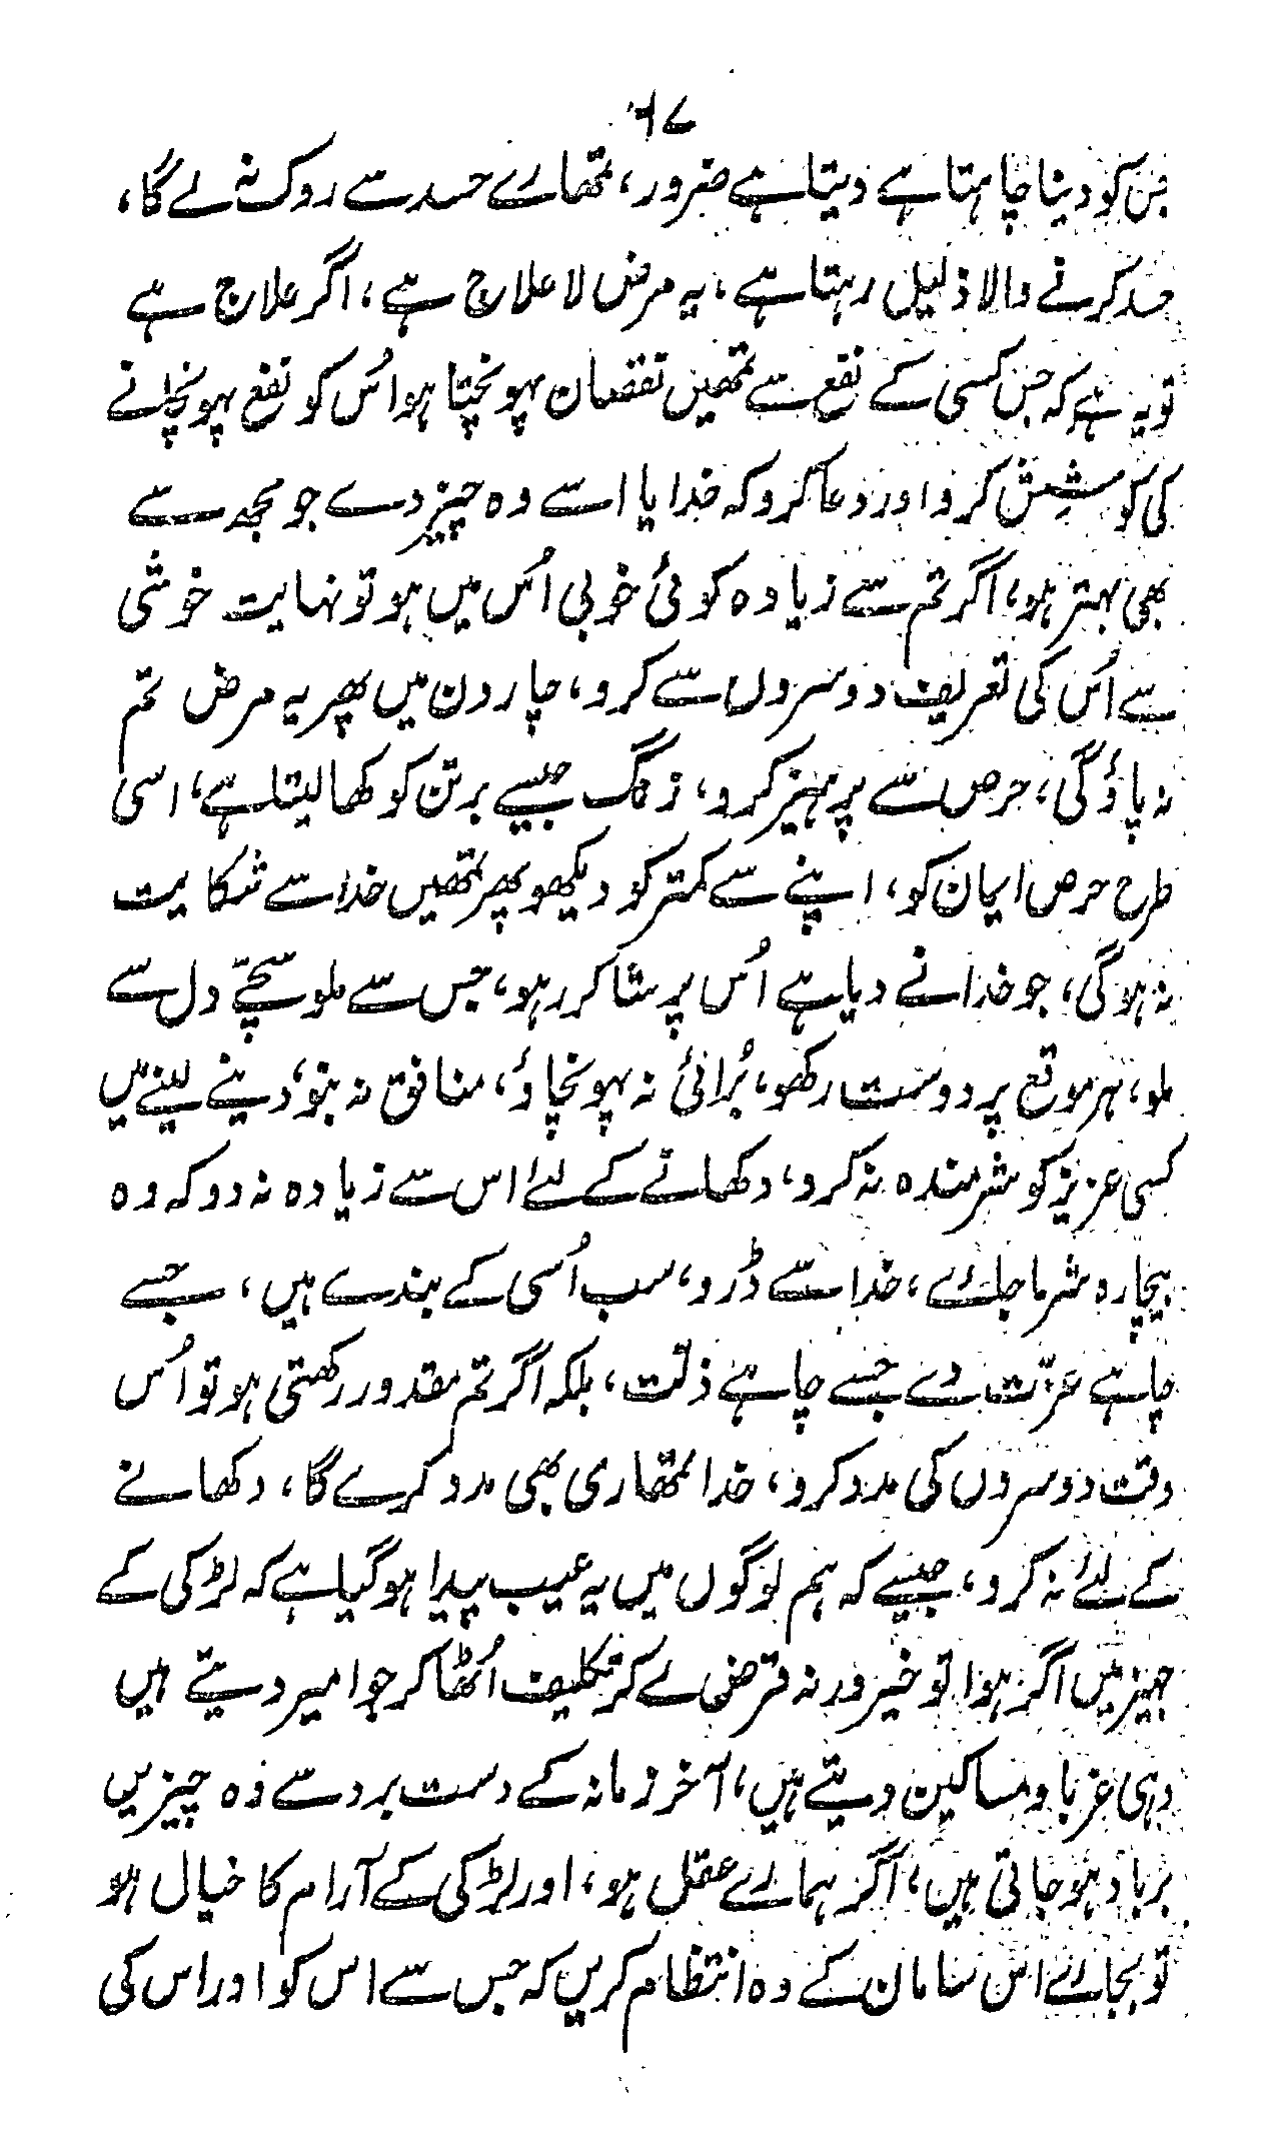 ۶۷
جس کو دینا چاہتا ہے دیتا ہے ضرور، تمھارے حسد سے روک نہ لے گا،
حسد کرنے والا ذلیل رہتا ہے، یہ مرض لا علاج ہے، اگر علاج ہے
تو یہ ہے کہ جس کسی کے نفع سے تمھیں نقصان پہونچتا ہو اُس کو نفع پہونچانے
کی کوشش کرو اور دعا کرو کہ خدایا اسے وہ چیز دے جو مجھ سے
بھی بہتر ہو، اگر تم سے زیادہ کوئی خوبی اُس میں ہو تو نہایت خوشی
سے اُس کی تعریف دوسروں سے کرو، چار دن میں پھر یہ مرض تم
نہ پاؤ گی، حرص سے پرہیز کرو، زنگ جیسے برتن کو کھا لیتا ہے، اسی
طرح حرص ایمان کو، اپنے سے کمتر کو دیکھو پھر تمھیں خدا سے شکایت
نہ ہو گی، جو خدا نے دیا ہے اُس پر شاکر رہو، جس سے ملو سچّے دل سے
ملو، ہر موقع پر دوست رکھو، بُرائی نہ پہونچاؤ، منافق نہ بنو، دینے لینے میں
کسی عزیز کو شرمندہ نہ کرو، دکھانے کے لئے اس سے زیادہ نہ دو کہ وہ
بیچارہ شرما جائے، خدا سے ڈرو، سب اُسی کے بندے ہیں، جسے
چاہے عزّت دے جسے چاہے ذلّت، بلکہ اگر تم مقدور رکھتی ہو تو اُس
وقت دوسروں کی مدد کرو، خدا تمھاری بھی مدد کرے گا، دکھانے
کے لئے نہ کرو، جیسے کہ ہم لوگوں میں یہ عیب پیدا ہو گیا ہے کہ لڑکی کے
جہیز میں اگر ہوا تو خیر ورنہ قرض لے کر تکلیف اُٹھا کر جو امیر دیتے ہیں
وہی غربا و مساکین دیتے ہیں، آخر زمانہ کے دست برد سے وہ چیزیں
برباد ہو جاتی ہیں، اگر ہمارے عقل ہو، اور لڑکی کے آرام کا خیال ہو
تو بجائے اس سامان کے وہ انتظام کریں کہ جس سے اس کو اور اس کی